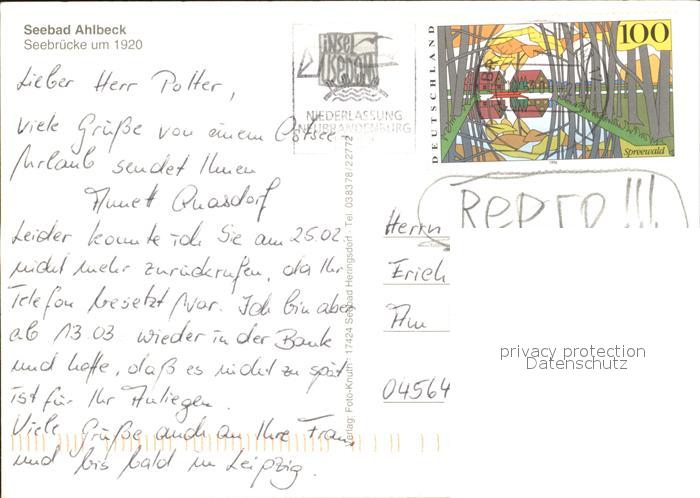 Seebad Ahlbeck
Seebrücke um 1920
Lieber Herr Potter,
viele Grüße von einem Ostsee-
Urlaub sendet Ihnen
Annett Quasdorf
Leider konnte ich Sie am 25.02.
nicht mehr zurückrufen, da Ihr
Telefon besetzt war. Ich bin aber
ab 13.03. wieder in der Bank
und hoffe, daß es nicht zu spät
ist für Ihr Anliegen.
Viele Grüße auch an Ihre Frau
und bis bald in Leipzig.
Verlag: Foto-Knuth · 17424 Seebad Heringsdorf · Tel. 038378/22772
insel
usedom
NIEDERLASSUNG
NEUBRANDENBURG
DEUTSCHLAND
100
Spreewald
1996
Repro!!!
Herrn
Erich
Am
04564
privacy protection
Datenschutz